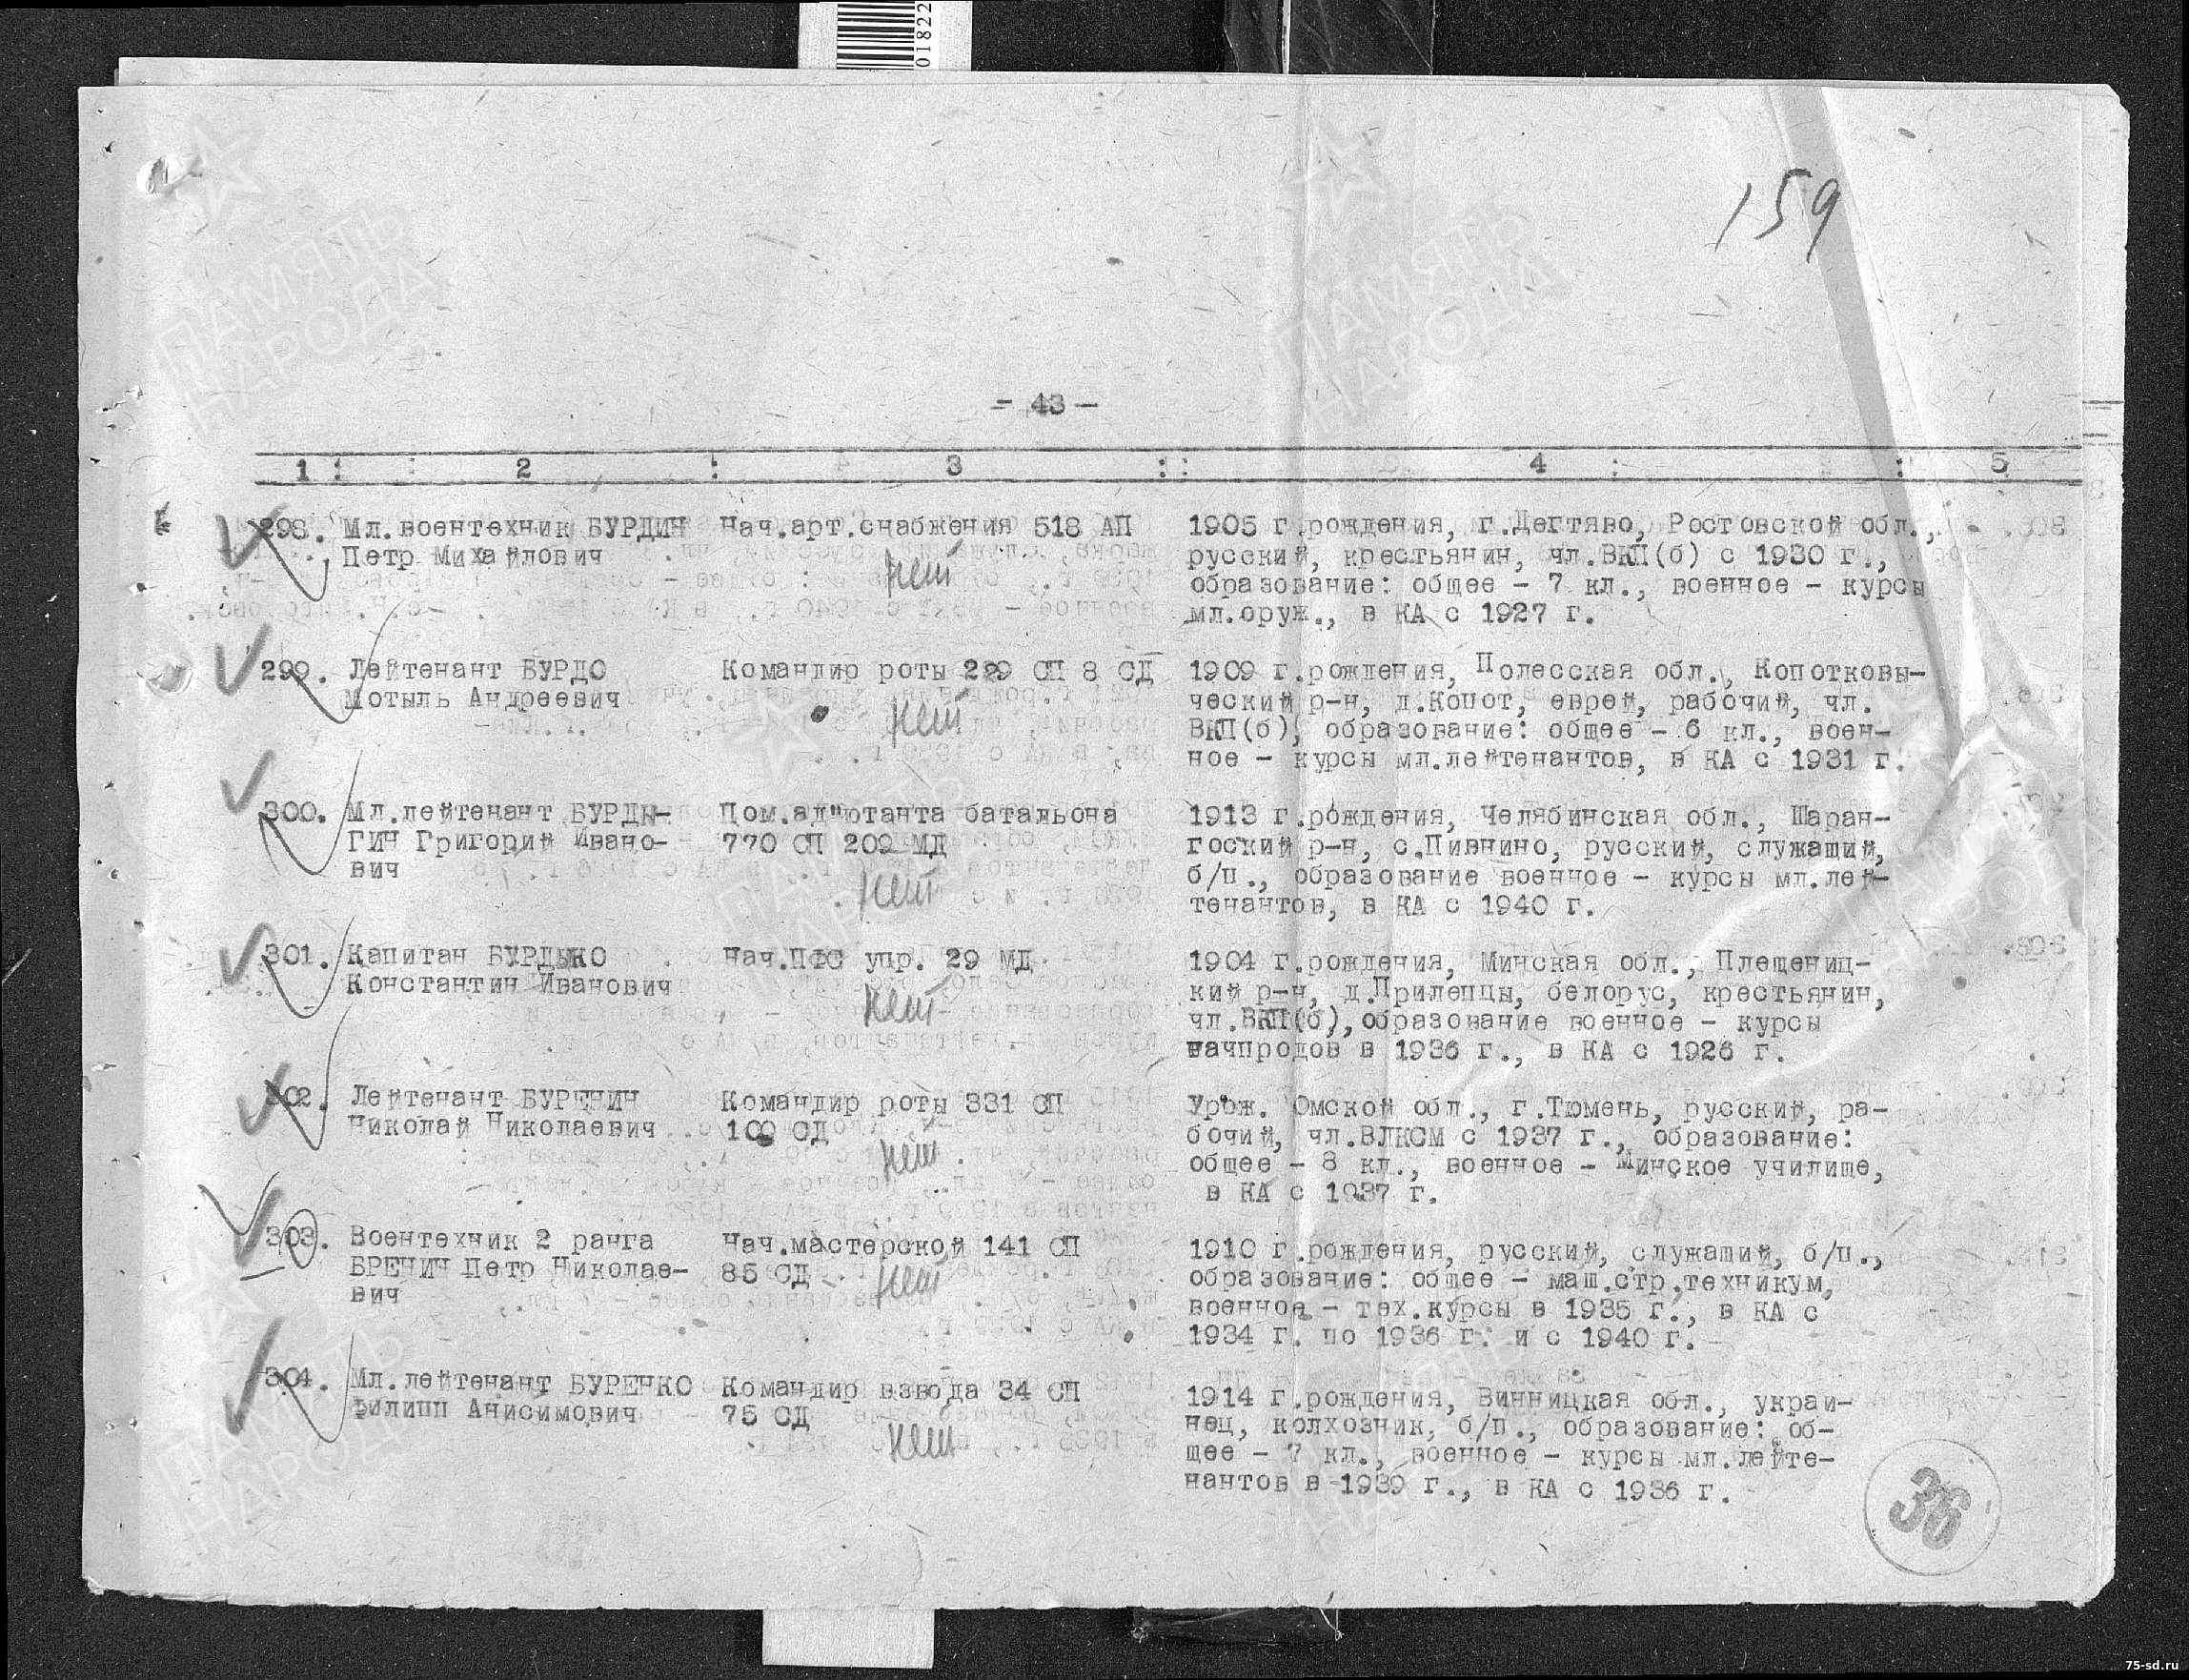 01822
159
- 43 -
1 : 2 : 3 : 4 : 5
298. Мл.воентехник БУРДИН Нач.арт.снабжения 518 АП 1905 г.рождения, г.Дегтяво, Ростовской обл.,
Петр Михайлович русский, крестьянин, чл.ВКП(б) с 1930 г.,
нет образование: общее - 7 кл., военное - курсы
мл.оруж., в КА с 1927 г.
299. Лейтенант БУРДО Командир роты 229 СП 8 СД 1909 г.рождения, Полесская обл., Копотковы-
Мотыль Андреевич ческий р-н, д.Копот, еврей, рабочий, чл.
нет ВКП(б), образование: общее - 6 кл., воен-
ное - курсы мл.лейтенантов, в КА с 1931 г.
300. Мл.лейтенант БУРДЫ- Пом.ад"ютанта батальона 1913 г.рождения, Челябинская обл., Шаран-
ГИН Григорий Ивано- 770 СП 209 МД гоский р-н, с.Пивнино, русский, служащий,
вич нет б/п., образование военное - курсы мл.лей-
тенантов, в КА с 1940 г.
301. Капитан БУРДЫКО Нач.ПФС упр. 29 МД 1904 г.рождения, Минская обл., Плещениц-
Константин Иванович кий р-н, д.Прилепцы, белорус, крестьянин,
нет чл.ВКП(б), образование военное - курсы
начпродов в 1936 г., в КА с 1926 г.
302. Лейтенант БУРЕНИН Командир роты 331 СП Урож. Омской обл., г.Тюмень, русский, ра-
Николай Николаевич 100 СД бочий, чл.ВЛКСМ с 1937 г., образование:
нет общее - 8 кл., военное - Минское училище,
в КА с 1937 г.
303. Воентехник 2 ранга Нач.мастерской 141 СП 1910 г.рождения, русский, служащий, б/п.,
БРЕНИН Петр Николае- 85 СД нет образование: общее - маш.стр.техникум,
вич военное - тех.курсы в 1935 г., в КА с
1934 г. по 1936 г. и с 1940 г.
304. Мл.лейтенант БУРЕНКО Командир взвода 34 СП 1914 г.рождения, Винницкая обл., украи-
Филипп Анисимович 75 СД нец, колхозник, б/п., образование: об-
нет щее - 7 кл., военное - курсы мл.лейте-
нантов в 1939 г., в КА с 1936 г.
36
ПАМЯТЬ
НАРОДА
75-sd.ru